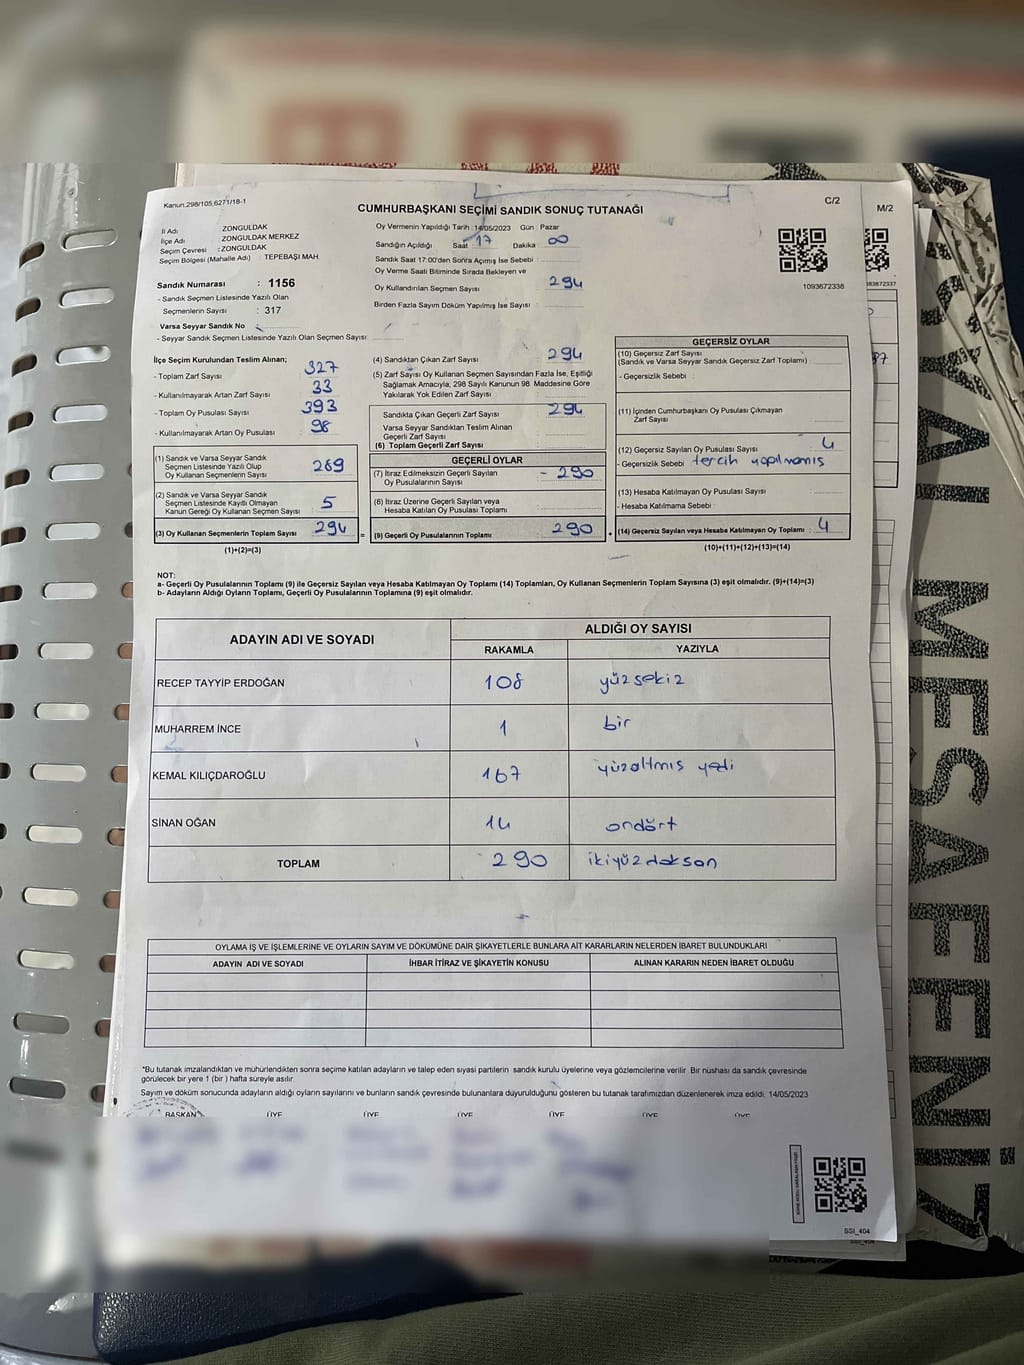 Kanun,298/105,6271/18-1
C/2
M/2
CUMHURBAŞKANI SEÇİMİ SANDIK SONUÇ TUTANAĞI
İl Adı : ZONGULDAK
İlçe Adı : ZONGULDAK MERKEZ
Seçim Çevresi : ZONGULDAK
Seçim Bölgesi (Mahalle Adı) : TEPEBAŞI MAH.
Sandık Numarası : 1156
- Sandık Seçmen Listesinde Yazılı Olan
Seçmenlerin Sayısı : 317
Varsa Seyyar Sandık No :
- Seyyar Sandık Seçmen Listesinde Yazılı Olan Seçmen Sayısı:
Oy Vermenin Yapıldığı Tarih : 14/05/2023 Gün : Pazar
Sandığın Açıldığı Saat : 17 Dakika : 00
Sandık Saat 17:00'den Sonra Açımış İse Sebebi :
Oy Verme Saati Bitiminde Sırada Bekleyen ve
Oy Kullandırılan Seçmen Sayısı : 294
Birden Fazla Sayım Döküm Yapılmış İse Sayısı :
1093672338
093672337
İlçe Seçim Kurulundan Teslim Alınan;
- Toplam Zarf Sayısı : 327
- Kullanılmayarak Artan Zarf Sayısı : 33
- Toplam Oy Pusulası Sayısı : 393
- Kullanılmayarak Artan Oy Pusulası : 98
(1) Sandık ve Varsa Seyyar Sandık
Seçmen Listesinde Yazılı Olup
Oy Kullanan Seçmenlerin Sayısı : 269
(2) Sandık ve Varsa Seyyar Sandık
Seçmen Listesinde Kayıtlı Olmayan
Kanun Gereği Oy Kullanan Seçmen Sayısı : 5
(3) Oy Kullanan Seçmenlerin Toplam Sayısı : 294
(1)+(2)=(3)
(4) Sandıktan Çıkan Zarf Sayısı : 294
(5) Zarf Sayısı Oy Kullanan Seçmen Sayısından Fazla İse, Eşitliği
Sağlamak Amacıyla, 298 Sayılı Kanunun 98. Maddesine Göre
Yakılarak Yok Edilen Zarf Sayısı :
Sandıkta Çıkan Geçerli Zarf Sayısı : 294
Varsa Seyyar Sandıktan Teslim Alınan
Geçerli Zarf Sayısı :
(6) Toplam Geçerli Zarf Sayısı :
GEÇERLİ OYLAR
(7) İtiraz Edilmeksizin Geçerli Sayılan
Oy Pusulalarının Sayısı : 290
(8) İtiraz Üzerine Geçerli Sayılan veya
Hesaba Katılan Oy Pusulası Toplamı :
(9) Geçerli Oy Pusulalarının Toplamı : 290
GEÇERSİZ OYLAR
(10) Geçersiz Zarf Sayısı
(Sandık ve Varsa Seyyar Sandık Geçersiz Zarf Toplamı) :
- Geçersizlik Sebebi :
(11) İçinden Cumhurbaşkanı Oy Pusulası Çıkmayan
Zarf Sayısı :
(12) Geçersiz Sayılan Oy Pusulası Sayısı : 4
- Geçersizlik Sebebi : tercih yapılmamış
(13) Hesaba Katılmayan Oy Pusulası Sayısı :
- Hesaba Katılmama Sebebi :
(14) Geçersiz Sayılan veya Hesaba Katılmayan Oy Toplamı : 4
(10)+(11)+(12)+(13)=(14)
NOT:
a- Geçerli Oy Pusulalarının Toplamı (9) ile Geçersiz Sayılan veya Hesaba Katılmayan Oy Toplamı (14) Toplamları, Oy Kullanan Seçmenlerin Toplam Sayısına (3) eşit olmalıdır. (9)+(14)=(3)
b- Adayların Aldığı Oyların Toplamı, Geçerli Oy Pusulalarının Toplamına (9) eşit olmalıdır.
ADAYIN ADI VE SOYADI ALDIĞI OY SAYISI
RAKAMLA YAZIYLA
RECEP TAYYİP ERDOĞAN 108 yüzsekiz
MUHARREM İNCE 1 bir
KEMAL KILIÇDAROĞLU 167 yüzaltmış yedi
SİNAN OĞAN 14 ondört
TOPLAM 290 ikiyüzdoksan
OYLAMA İŞ VE İŞLEMLERİNE VE OYLARIN SAYIM VE DÖKÜMÜNE DAİR ŞİKAYETLERLE BUNLARA AİT KARARLARIN NELERDEN İBARET BULUNDUKLARI
ADAYIN ADI VE SOYADI İHBAR İTİRAZ VE ŞİKAYETİN KONUSU ALINAN KARARIN NEDEN İBARET OLDUĞU
"Bu tutanak imzalandıktan ve mühürlendikten sonra seçime katılan adayların ve talep eden siyasi partilerin sandık kurulu üyelerine veya gözlemcilerine verilir. Bir nüshası da sandık çevresinde
görülecek bir yere 1 (bir ) hafta süreyle asılır.
Sayım ve döküm sonucunda adayların aldığı oyların sayılarını ve bunların sandık çevresinde bulunanlara duyurulduğunu gösteren bu tutanak tarafımızdan düzenlenerek imza edildi. 14/05/2023
BAŞKAN ÜYE ÜYE ÜYE ÜYE ÜYE ÜYE
SSİ_404
MESAFENİZ